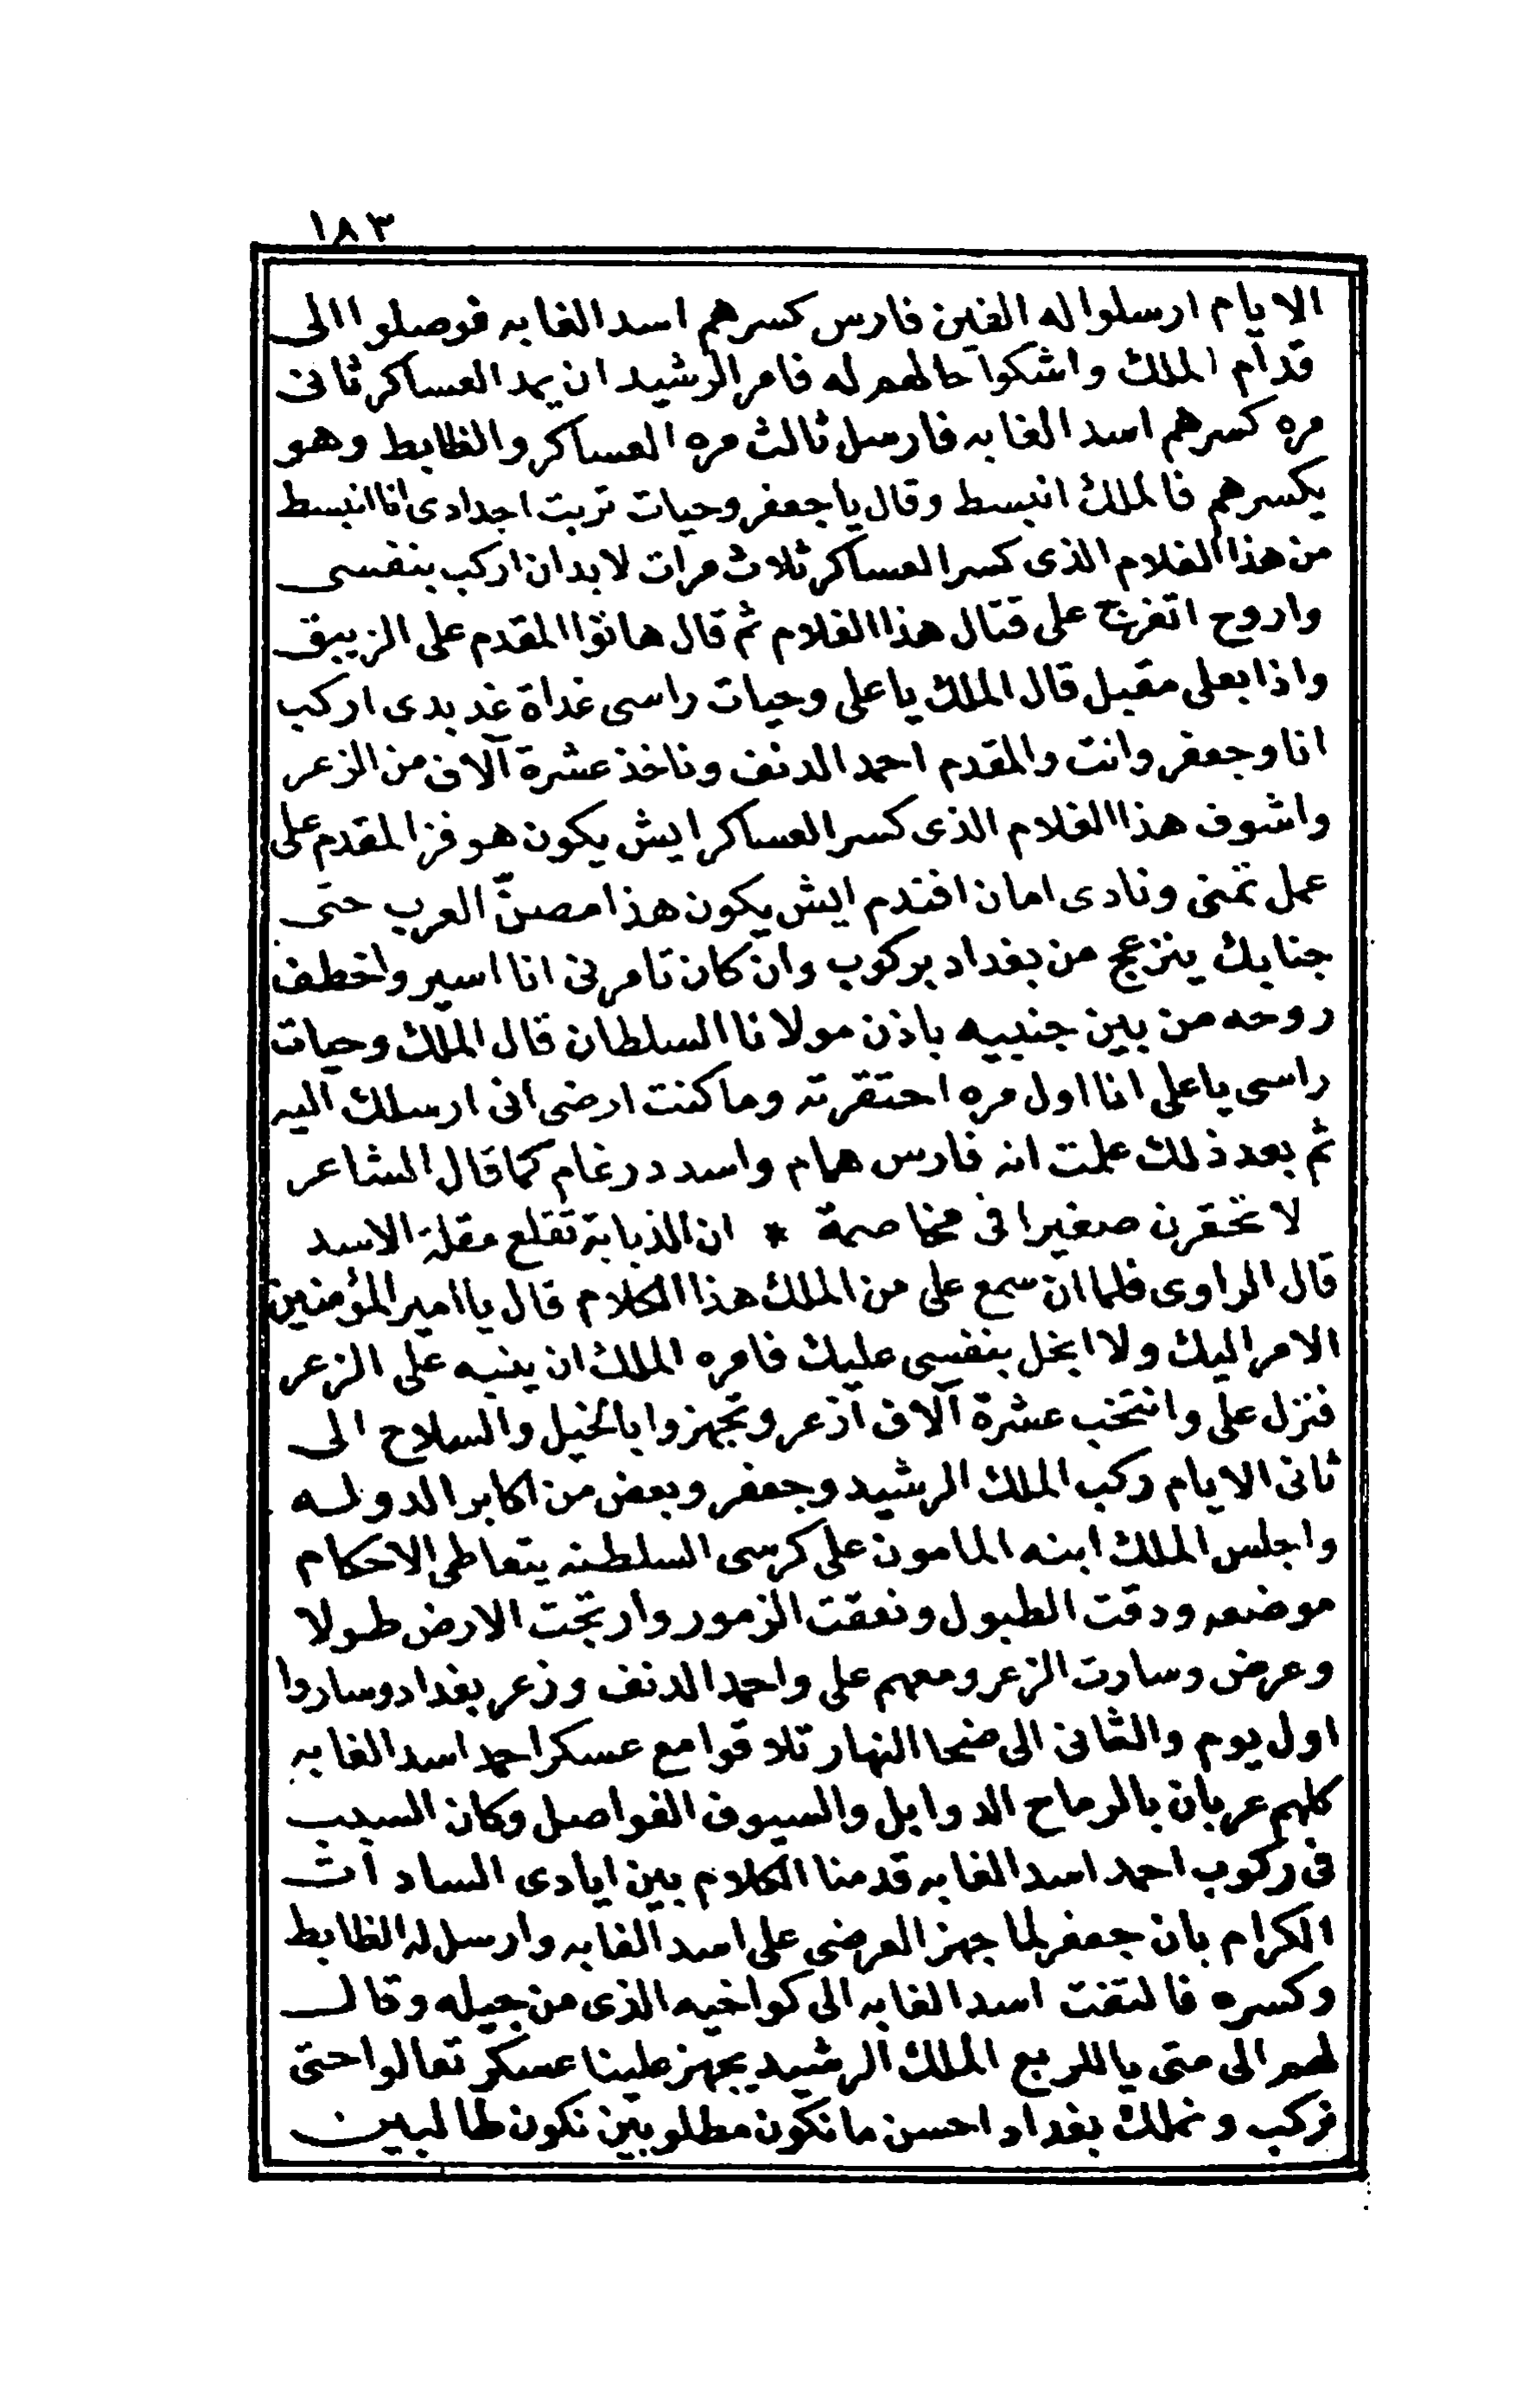 ١٨٣
الايام ارسلوا له الفين فارس كسرهم اسد الغابه فوصلوا الى
قدام الملك واشكوا حالهم له فامر الرشيد ان يمد العساكر ثانى
مره كسرهم اسد الغابه فارسل ثالث مره العساكر والظابط وهو
يكسرهم فالملك انبسط وقال يا جعفر وحيات تربت اجدادى انا انبسط
من هذا الغلام الذى كسر العساكر ثلاث مرات لا بد ان اركب بنفسى
واروح اتفرج على قتال هذا الغلام ثم قال هاتوا المقدم على الزيبق
واذا بعلى مقبل قال الملك يا على وحيات راسى غداة غد بدى اركب
انا وجعفر وانت والمقدم احمد الدنف وناخذ عشرة آلاف من الزعر
واشوف هذا الغلام الذى كسر العساكر ايش يكون هو فز المقدم على
عمل تمنى ونادى امان افندم ايش يكون هذا مصنّ العرب حتى
جنابك ينزعج من بغداد بركوب وان كان تامرنى انا اسير واخطف
روحه من بين جنبيه باذن مولانا السلطان قال الملك وحيات
راسى يا على انا اول مره احتقرته وما كنت ارضى انى ارسلك اليه
ثم بعد ذلك علمت انه فارس همام واسد درغام كما قال الشاعر
لا تحقرن صغيرا فى مخاصمة * ان الذبابة تقلع مقلة الاسد
قال الراوى فلما ان سمع على من الملك هذا الكلام قال يا امير المؤمنين
الامر اليك ولا ابخل بنفسى عليك فامره الملك ان ينبه على الزعر
فنزل على وانتخب عشرة آلاف ازعر وتجهزوا بالخيل والسلاح الى
ثانى الايام ركب الملك الرشيد وجعفر وبعض من اكابر الدوله
واجلس الملك ابنه المامون على كرسى السلطنه يتعاطى الاحكام
موضعه ودقت الطبول ونعقت الزمور وارتجت الارض طولا
وعرض وسارت الزعر ومعهم على واحمد الدنف وزعر بغداد وساروا
اول يوم والثانى الى ضحا النهار تلاقوا مع عسكر احمد اسد الغابه
كلهم عربان بالرماح الدوابل والسيوف الفواصل وكان السبب
فى ركوب احمد اسد الغابه قدمنا الكلام بين ايادى السادات
الكرام بان جعفر لما جهز العرضى على اسد الغابه وارسل له الظابط
وكسره فالتفت اسد الغابه الى كواخيه الذى من جيله وقال
لهم الى متى يا للربع الملك الرشيد يجهز علينا عسكر تعالوا حتى
نركب ونملك بغداد احسن ما نكون مطلوبين نكون طالبين